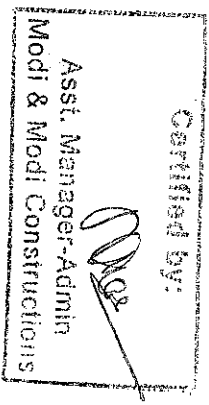 Certified by:
Asst. Manager-Admin
Modi & Modi Constructions